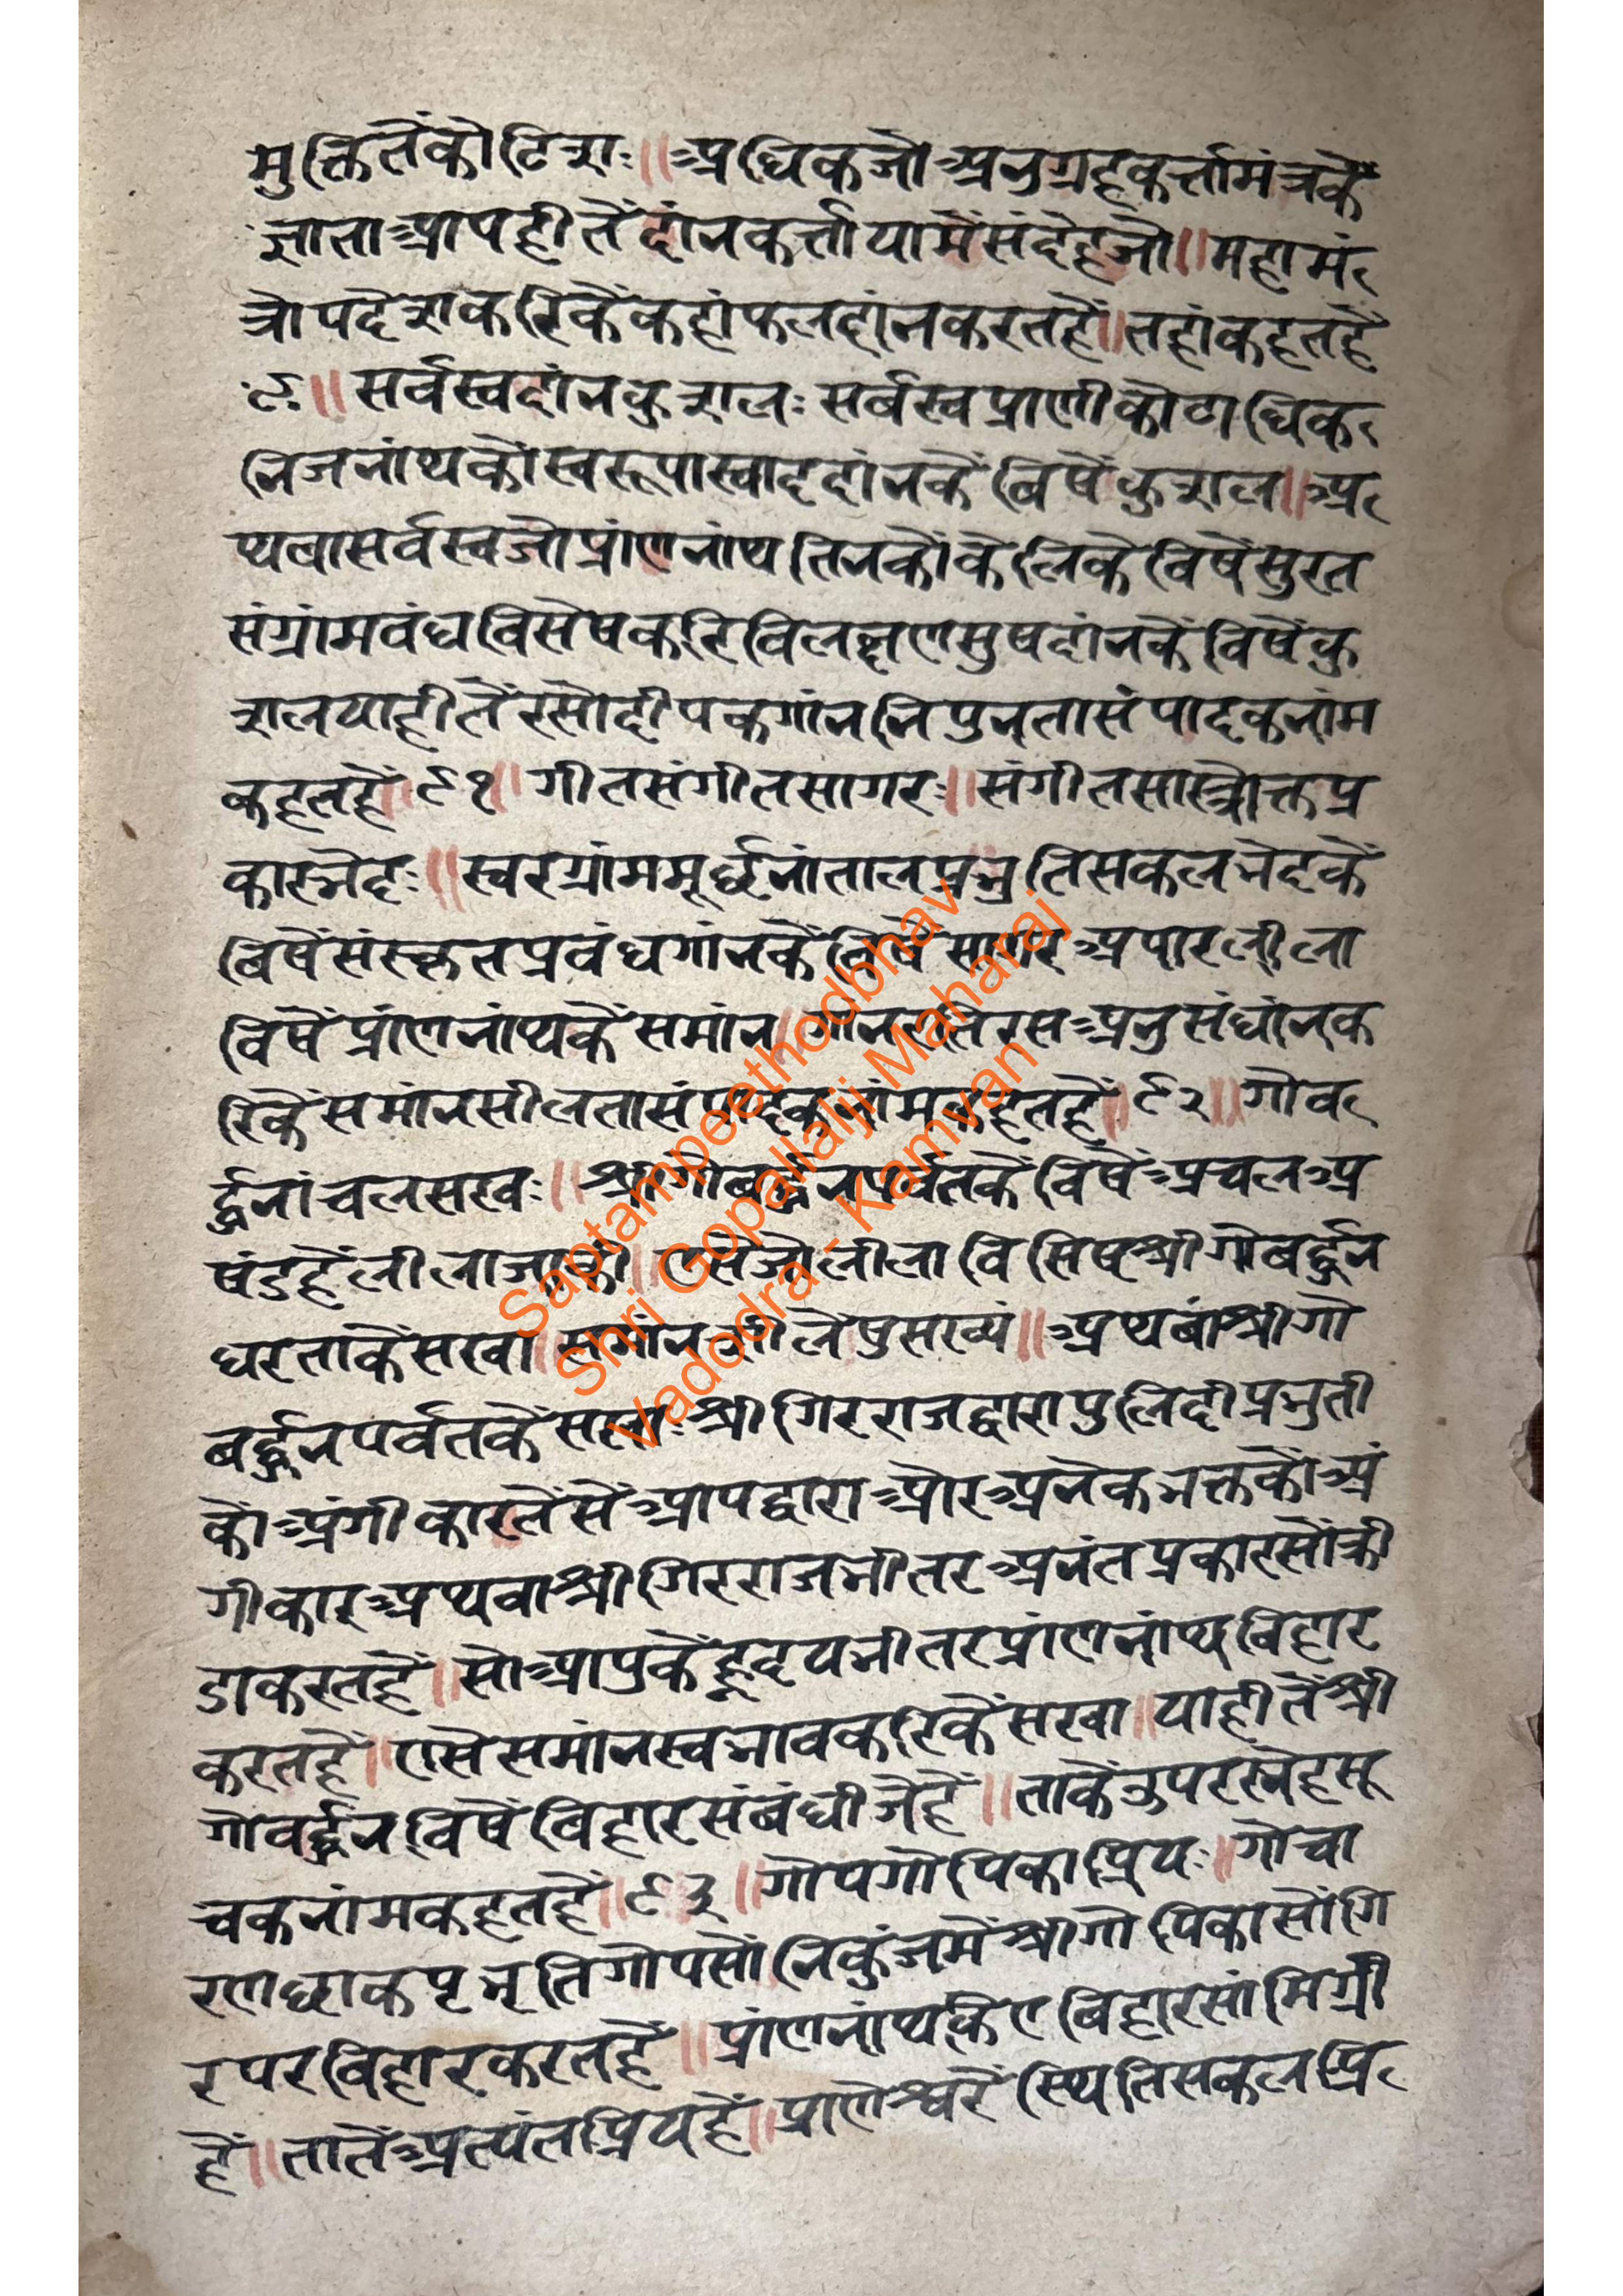 मुक्तितेंकोटिशः॥अधिकजोअनुग्रहकर्त्तामंत्रकें
ज्ञाताआपहीतेंदांनकर्त्तायामेंसंदेहजो॥महामं
त्रोपदेशकरिकेंकहांफलदांनकरतहें॥तहांकहतहें
९॰॥सर्वस्वदांनकुशलः सर्बस्वप्राणीकोटाधिक
निजनांथकोंस्वरूपास्वाददांनकें बिषेंकुशल॥अ
थवासर्वस्वजोप्रांणनांथ तिनकोंकेलिकेबिषेंसुरत
संग्रांमवंधविसेषकरिविलक्षणसुषदांनकें विषेंकु
शलयाहीतेंरसोदीपकगांननिपुनतासंपादकनांम
कहतहें॥९१॥ गीतसंगीतसागरः॥संगीतसास्त्रोक्तप्र
कारभेदः॥स्वरग्रांममूर्छनांतालप्रभृतिसकलभेदकें
बिषेंसंस्कृतप्रवंधगांनकें विषेंसागर अपारलीला
विषेंप्रांणनांथकेंसमांन॥गांन अनुसंधांनक
रिकेंसमांनसीलतासंपादकनांमकहतहें॥९२॥ गोव
र्द्धनांचलसखः॥श्रीगोबर्द्धनपर्वतकेंविषेंअचलअ
षंडहेंलीलाजाकी॥एसेजोलीला विसिषश्रीगोबर्द्धन
धरताकेंसखा॥समांनशीलेषुसख्यं॥अथबांश्रीगो
बर्द्धनपर्वतकेंसखाःश्रीगिरराजद्वारापुलिंदीप्रभुती
कोंअंगीकारतेंसेंआपद्वाराओरअनेकभक्तकोंअं
गीकारअथवाश्रीगिरराजभीतरअनंतप्रकारसोंक्री
डाकरतहें॥सोआपुकेंहृदयभीतरप्रांणनांथबिहार
करतहें॥एसेसमांनस्वभावकरिकेंसखा॥याहीतेंश्री
गोवर्द्धनविषेंबिहारसंबंधीजेहें॥ताकेंउपरस्नेहसू
चकनांमकहतहें॥९३॥गोपगोपिकाप्रियः॥गोचा
रणछाकपृभृतिगोपसोंनिकुंजमेंश्रीगोपिकासोंगि
रपरबिहारकरतहें॥प्रांणनांथकेएबिहारसांमिग्री
हें॥तातेंअत्यंतप्रियहें॥प्राणेश्वरें स्थितिसकलप्रि
Saptampeethodbhav
Shri Gopallalji Maharaj
Vadodra - Kamvan